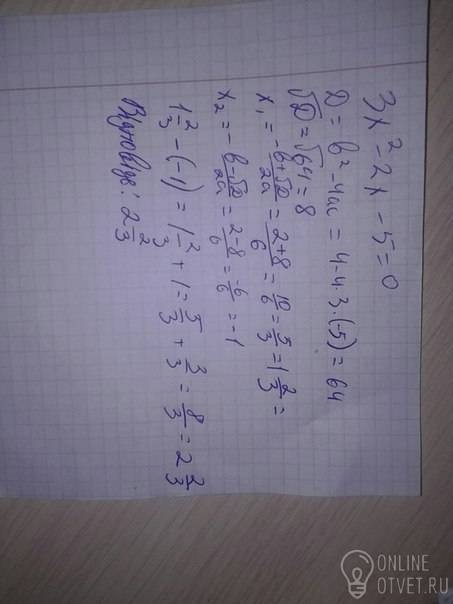 3x² - 2x - 5 = 0
D = b² - 4ac = 4 - 4·3·(-5) = 64
√D = √64 = 8
x₁ = \frac{-b+√D}{2a} = \frac{2+8}{6} = \frac{10}{6} = \frac{5}{3} = 1\frac{2}{3} =
x₂ = \frac{-b-√D}{2a} = \frac{2-8}{6} = \frac{-6}{6} = -1
1\frac{2}{3} - (-1) = 1\frac{2}{3} + 1 = \frac{5}{3} + \frac{3}{3} = \frac{8}{3} = 2\frac{2}{3}
Відповідь: 2\frac{2}{3}
ONLINE
OTVET.RU